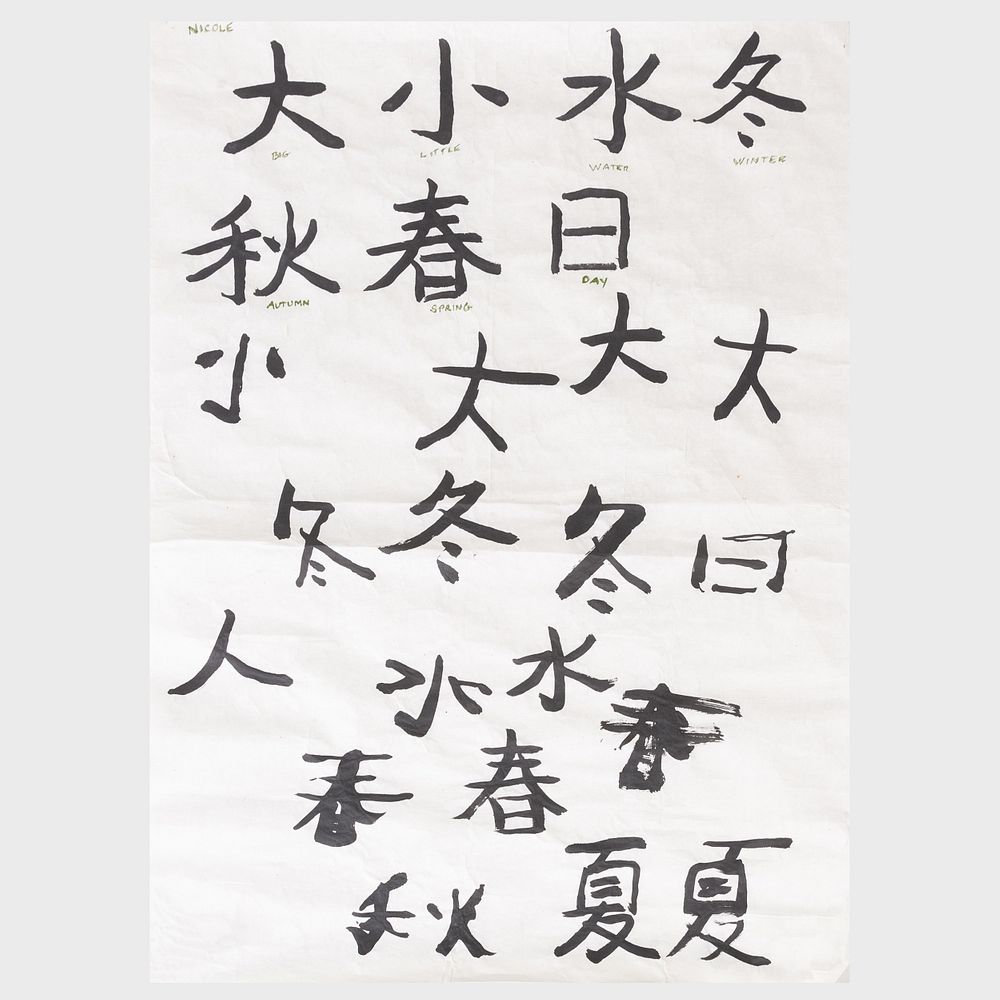 NICOLE
大 小 水 冬
BIG LITTLE WATER WINTER
秋 春 日
AUTUMN SPRING DAY
小 大 大 大
冬 冬 冬 日
人 水 水 春
春 春
秋 夏 夏